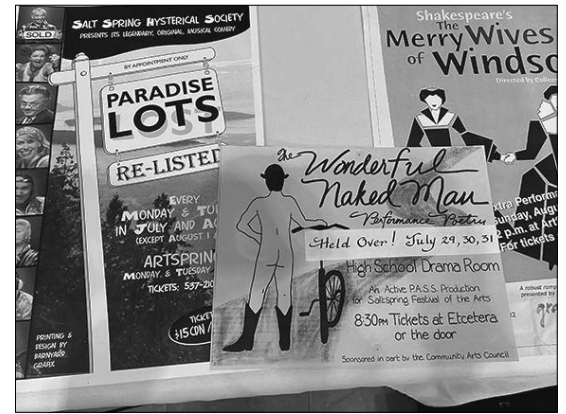 SOLD
SALT SPRING HYSTERICAL SOCIETY
PRESENTS ITS LEGENDARY, ORIGINAL, MUSICAL COMEDY
BY APPOINTMENT ONLY
PARADISE
LOST
LOTS
RE-LISTED
EVERY
MONDAY & TU
IN JULY AND A
(EXCEPT AUGUST 1
ARTSPRIN
MONDAY & TUESDAY
TICKETS: 537-210
TICKE
$15 CDN /
PRINTING &
DESIGN BY
BARNYARD
GRAFIX
Shakespeare's
The Merry Wives
of Windso
Directed by Collee
xtra Performa
unday, Aug
p.m. at Art
For tickets
A robust romp
presented by
gra
The Wonderful
Naked Man
Performance Poetry
Held Over! July 29, 30, 31
High School Drama Room
An Active P.A.S.S. Production
for Saltspring Festival of the Arts
8:30PM Tickets at Etcetera
or the door
Sponsored in part by the Community Arts Council